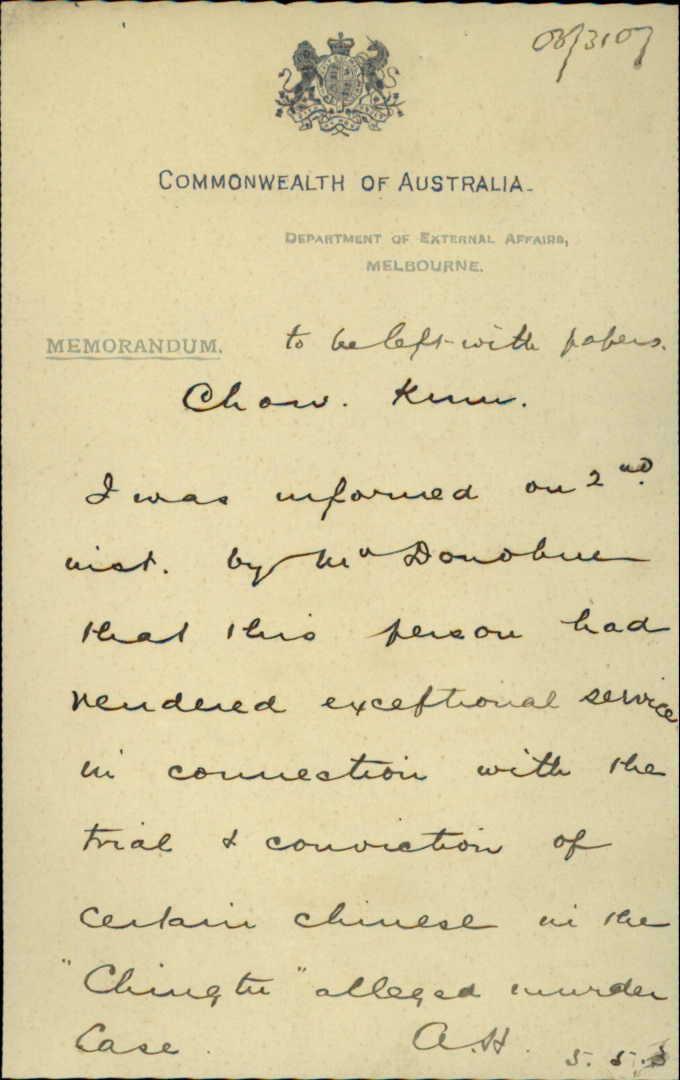 08/3107
COMMONWEALTH OF AUSTRALIA.
DEPARTMENT OF EXTERNAL AFFAIRS,
MELBOURNE.
MEMORANDUM. to be left with papers.
Chow. Kum.
I was informed on 2nd.
inst. by Mr Donohue
that this person had
rendered exceptional service
in connection with the
trial & conviction of
certain chinese in the
"Chingtu" alleged murder
Case. A.H. 5.5.8